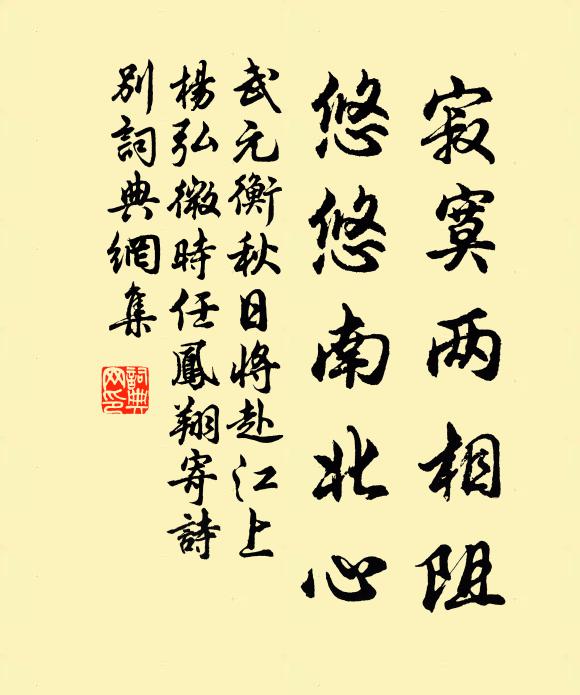 寂寞两相阻
悠悠南北心
武元衡秋日將赴江上
楊弘微時任鳳翔寄詩
別詞典網集
詞典
网印